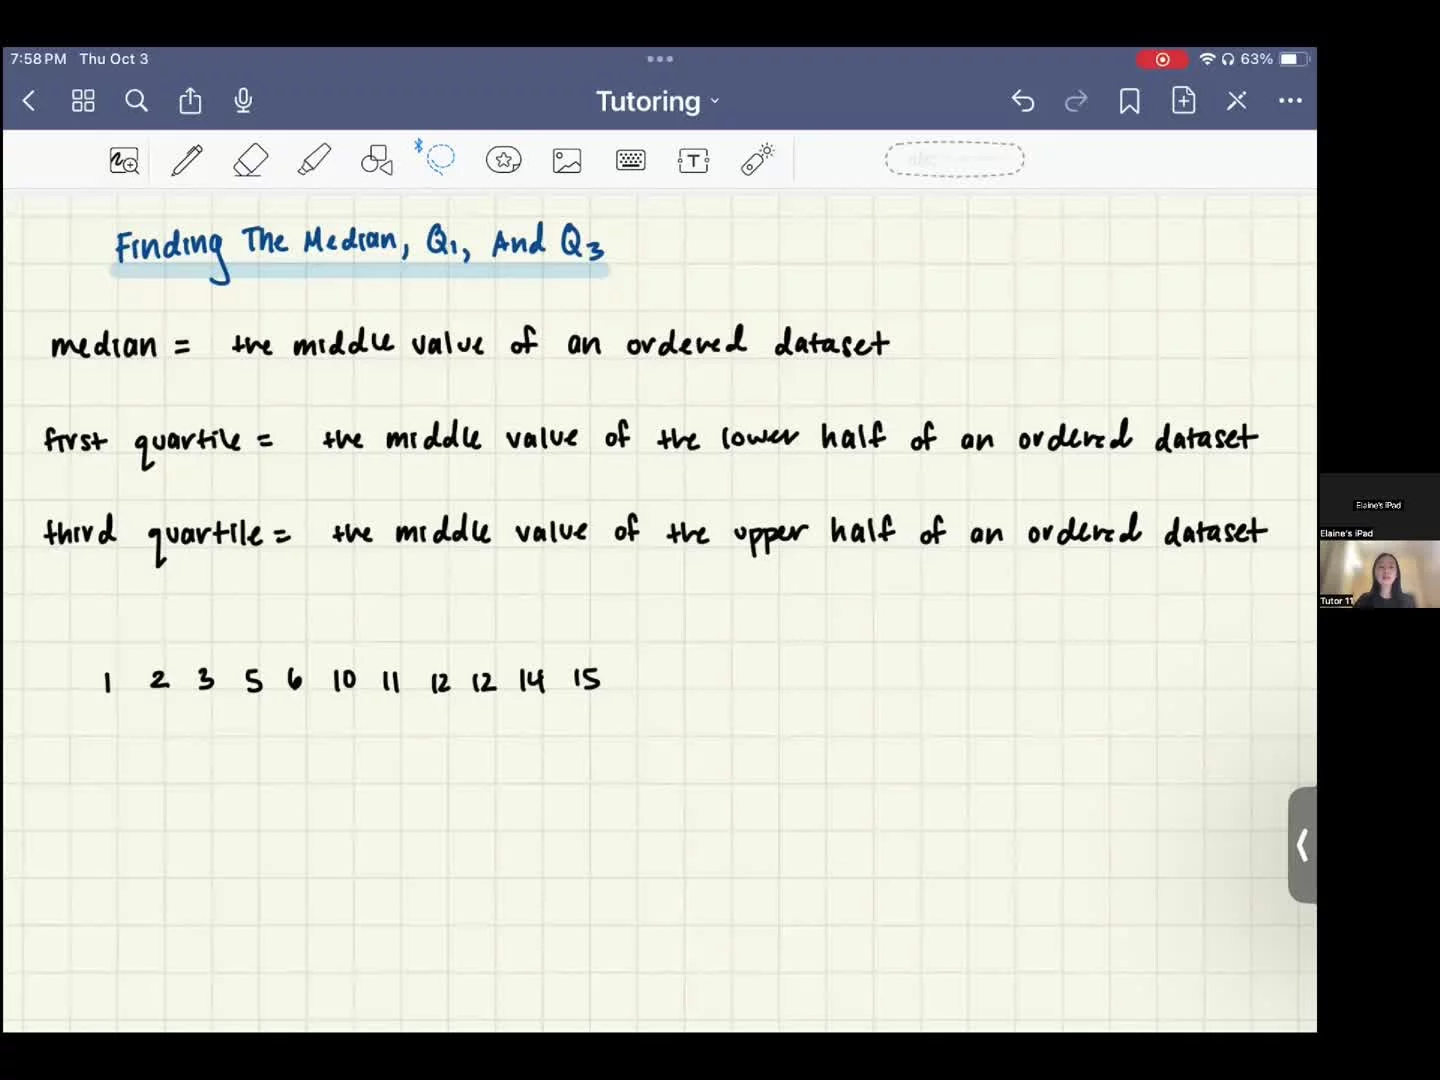 7:58 PM Thu Oct 3
63%
Tutoring
Finding The Median, Q1, And Q3
median = the middle value of an ordered dataset
first quartile = the middle value of the lower half of an ordered dataset
third quartile = the middle value of the upper half of an ordered dataset
1 2 3 5 6 10 11 12 12 14 15
Elaine's iPad
Elaine's iPad
Tutor 11